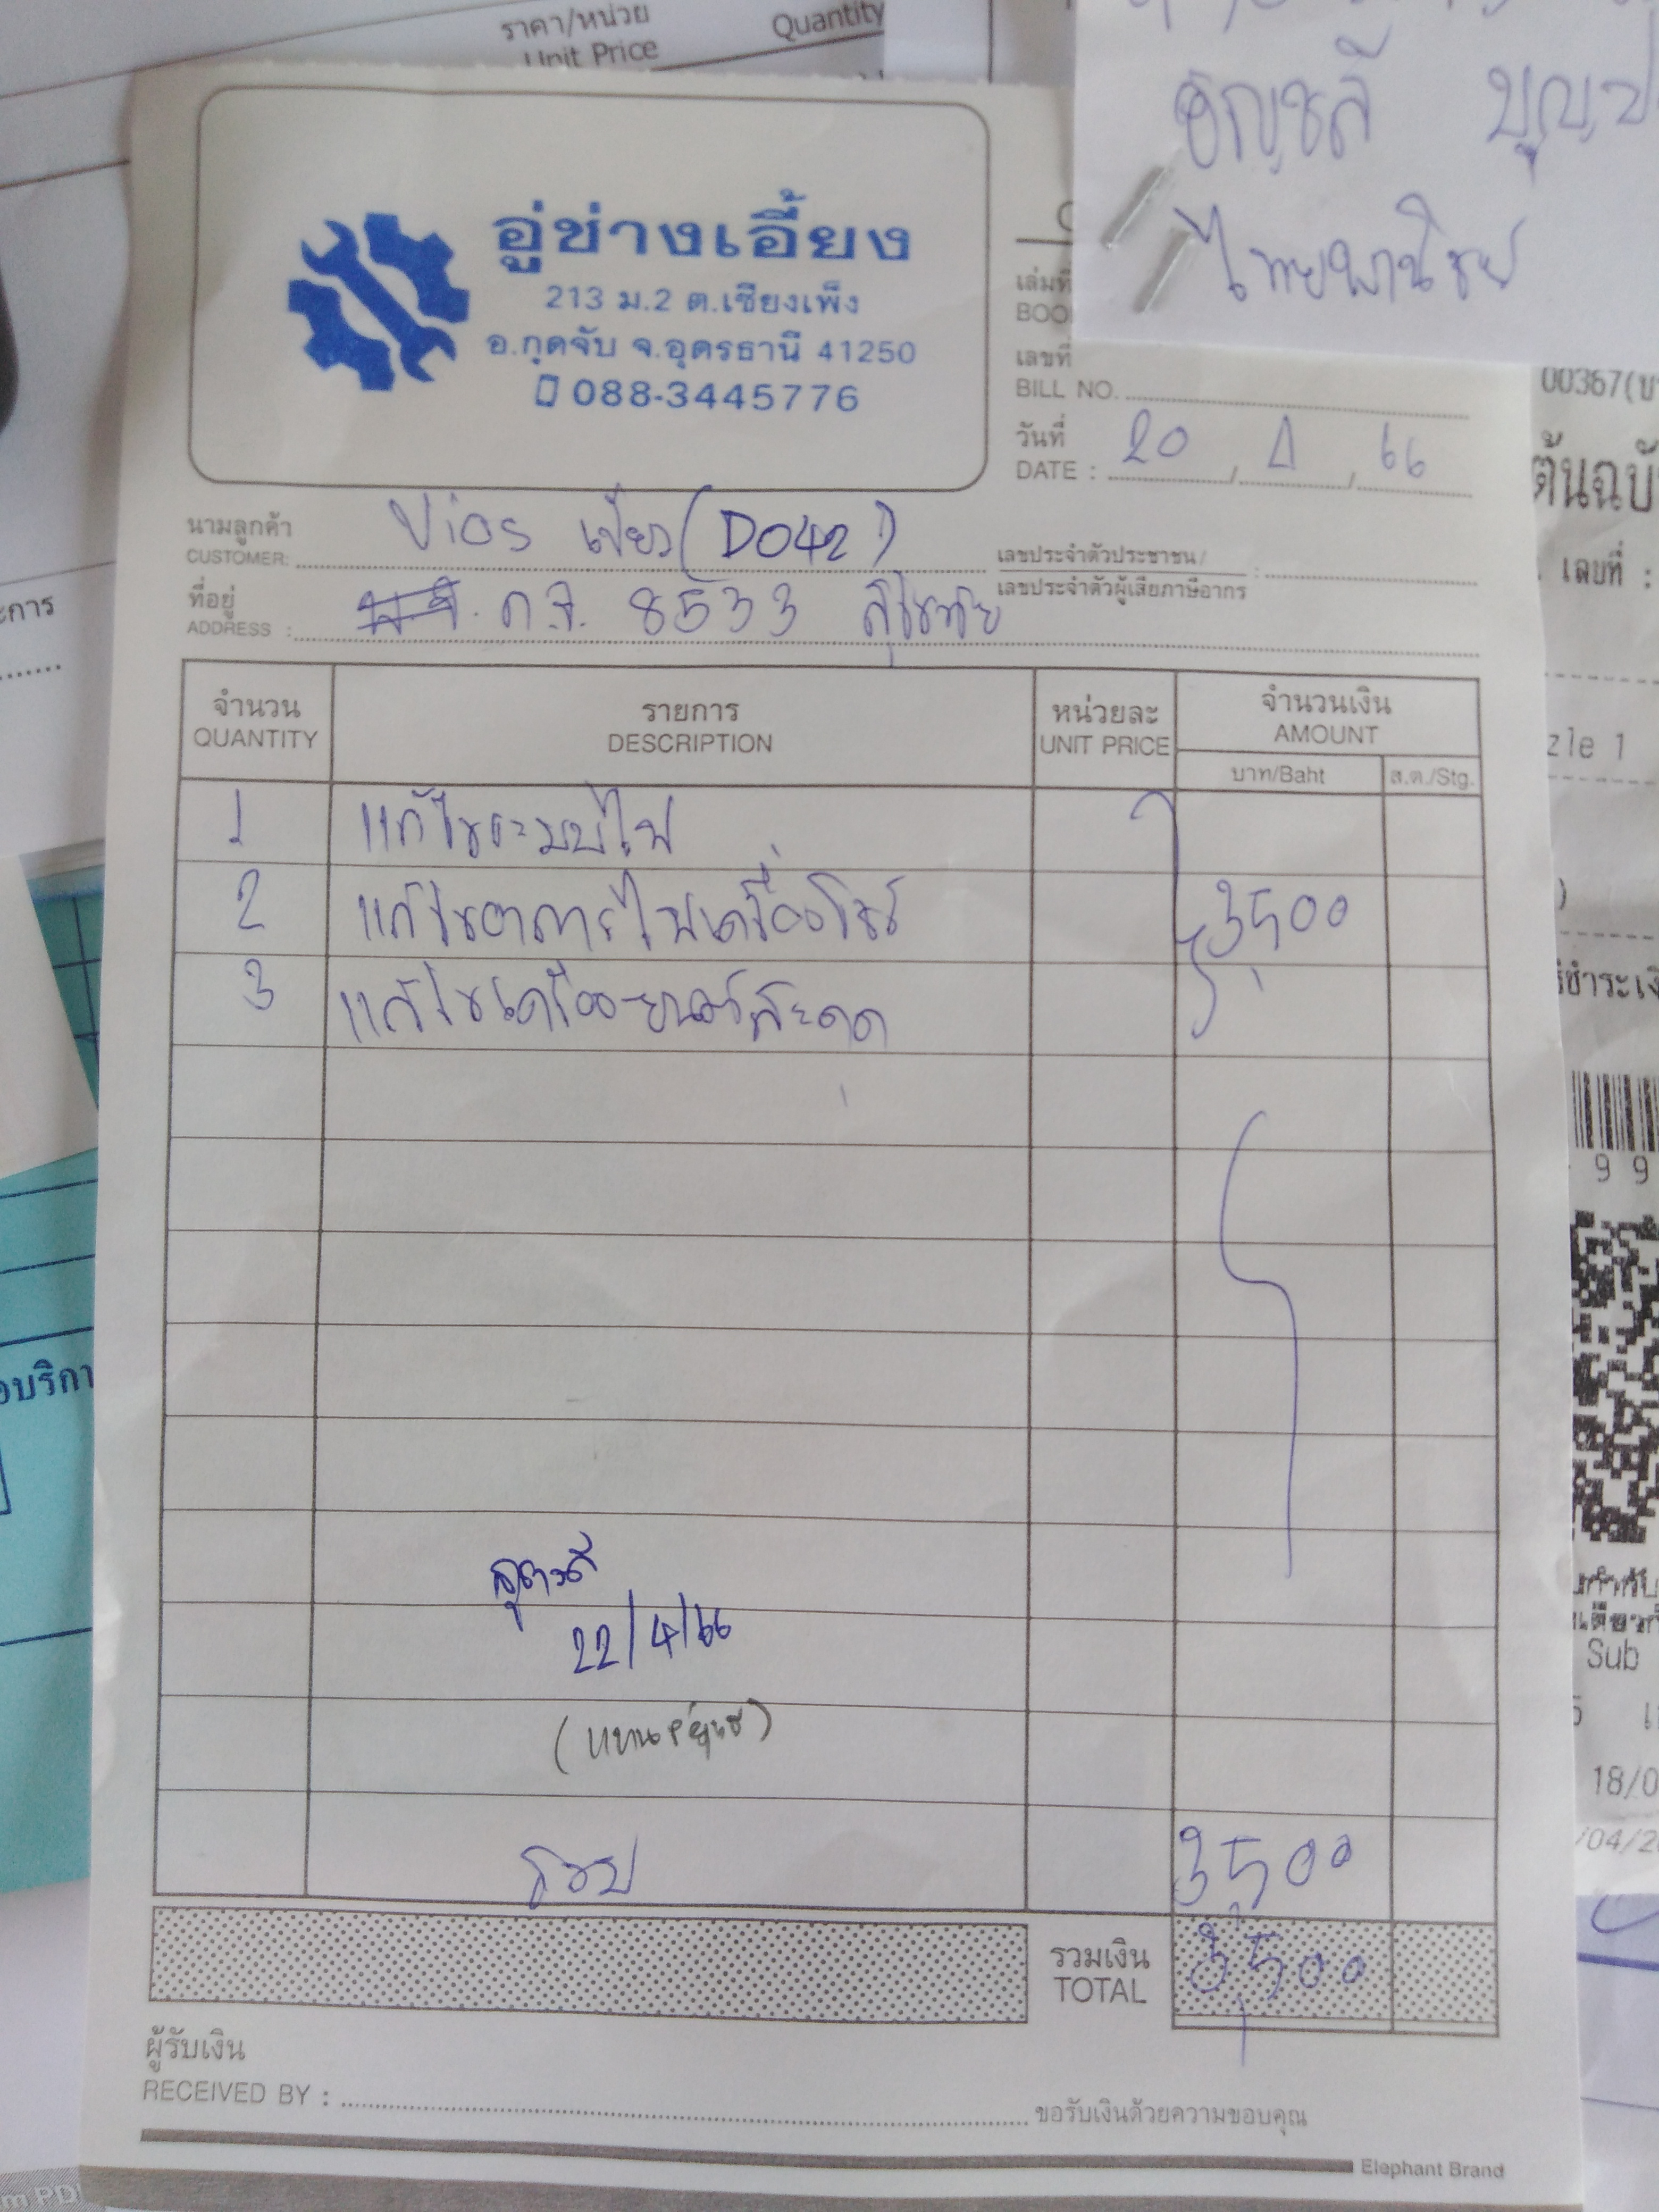 ราคา/หน่วย Quantity
Unit Price
อัญชลี บุญ
ไทยพาณิชย์
อู่ช่างเอี้ยง
213 ม.2 ต.เชียงเพ็ง
อ.กุดจับ จ.อุดรธานี 41250
088-3445776
เล่มที่
BOO
เลขที่
BILL NO.
วันที่
DATE : 20 / 4 / 66
นามลูกค้า
CUSTOMER: Vios เขียว (D042)
เลขประจำตัวประชาชน/
เลขประจำตัวผู้เสียภาษีอากร :
ที่อยู่
ADDRESS : กจ. 8533 สุโขทัย
จำนวน
QUANTITY
รายการ
DESCRIPTION
หน่วยละ
UNIT PRICE
จำนวนเงิน
AMOUNT
บาท/Baht ส.ต./Stg.
1 แก้ไขระบบไฟ
2 แก้ไขอาการไฟเครื่องโชว์ 3,500
3 แก้ไขเครื่องยนต์สะดุด
22/4/66
รวม 3,500
รวมเงิน
TOTAL 3,500
ผู้รับเงิน
RECEIVED BY :
ขอรับเงินด้วยความขอบคุณ
Elephant Brand
00367(
ต้นฉบั
เลขที่ :
zle 1
9 9
Sub
18/0
/04/2